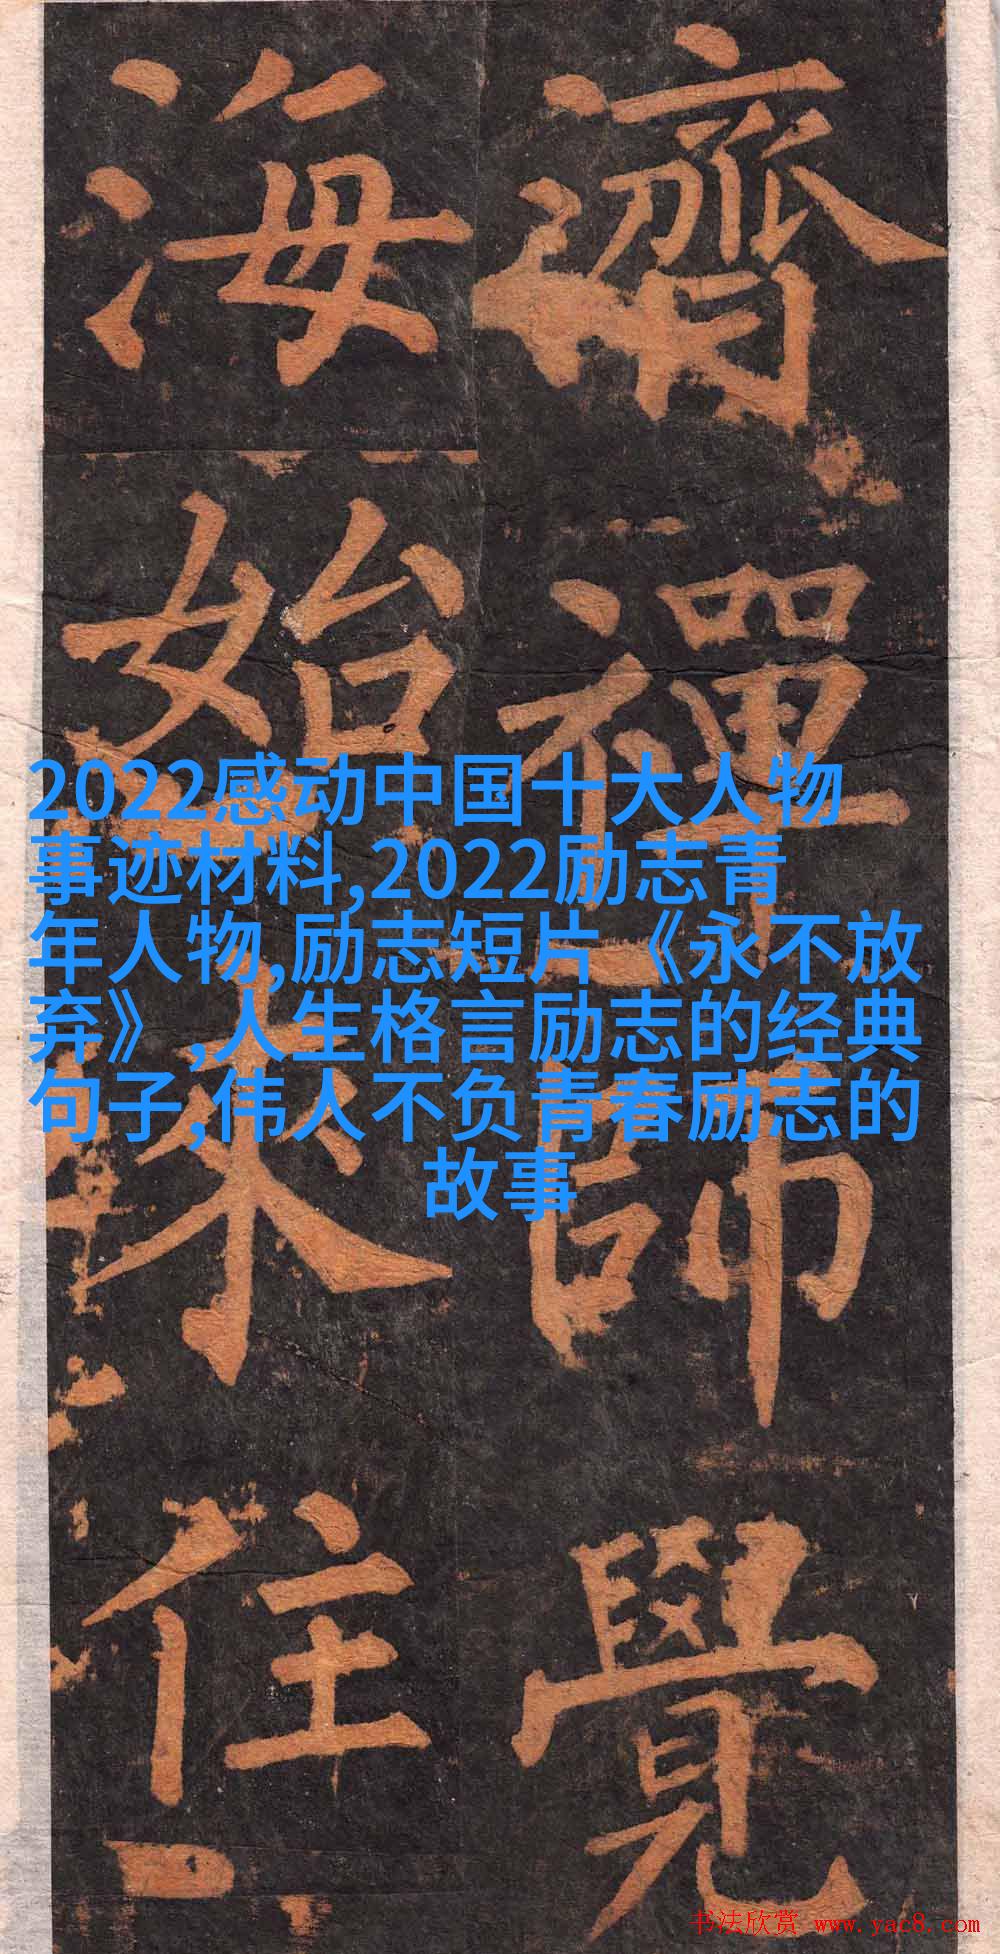 濟禪師覺
海始來住
2022感动中国十大人物
事迹材料,2022励志青
年人物,励志短片《永不放
弃》,人生格言励志的经典
句子,伟人不负青春励志的
故事
书法欣赏 www.yac8.com